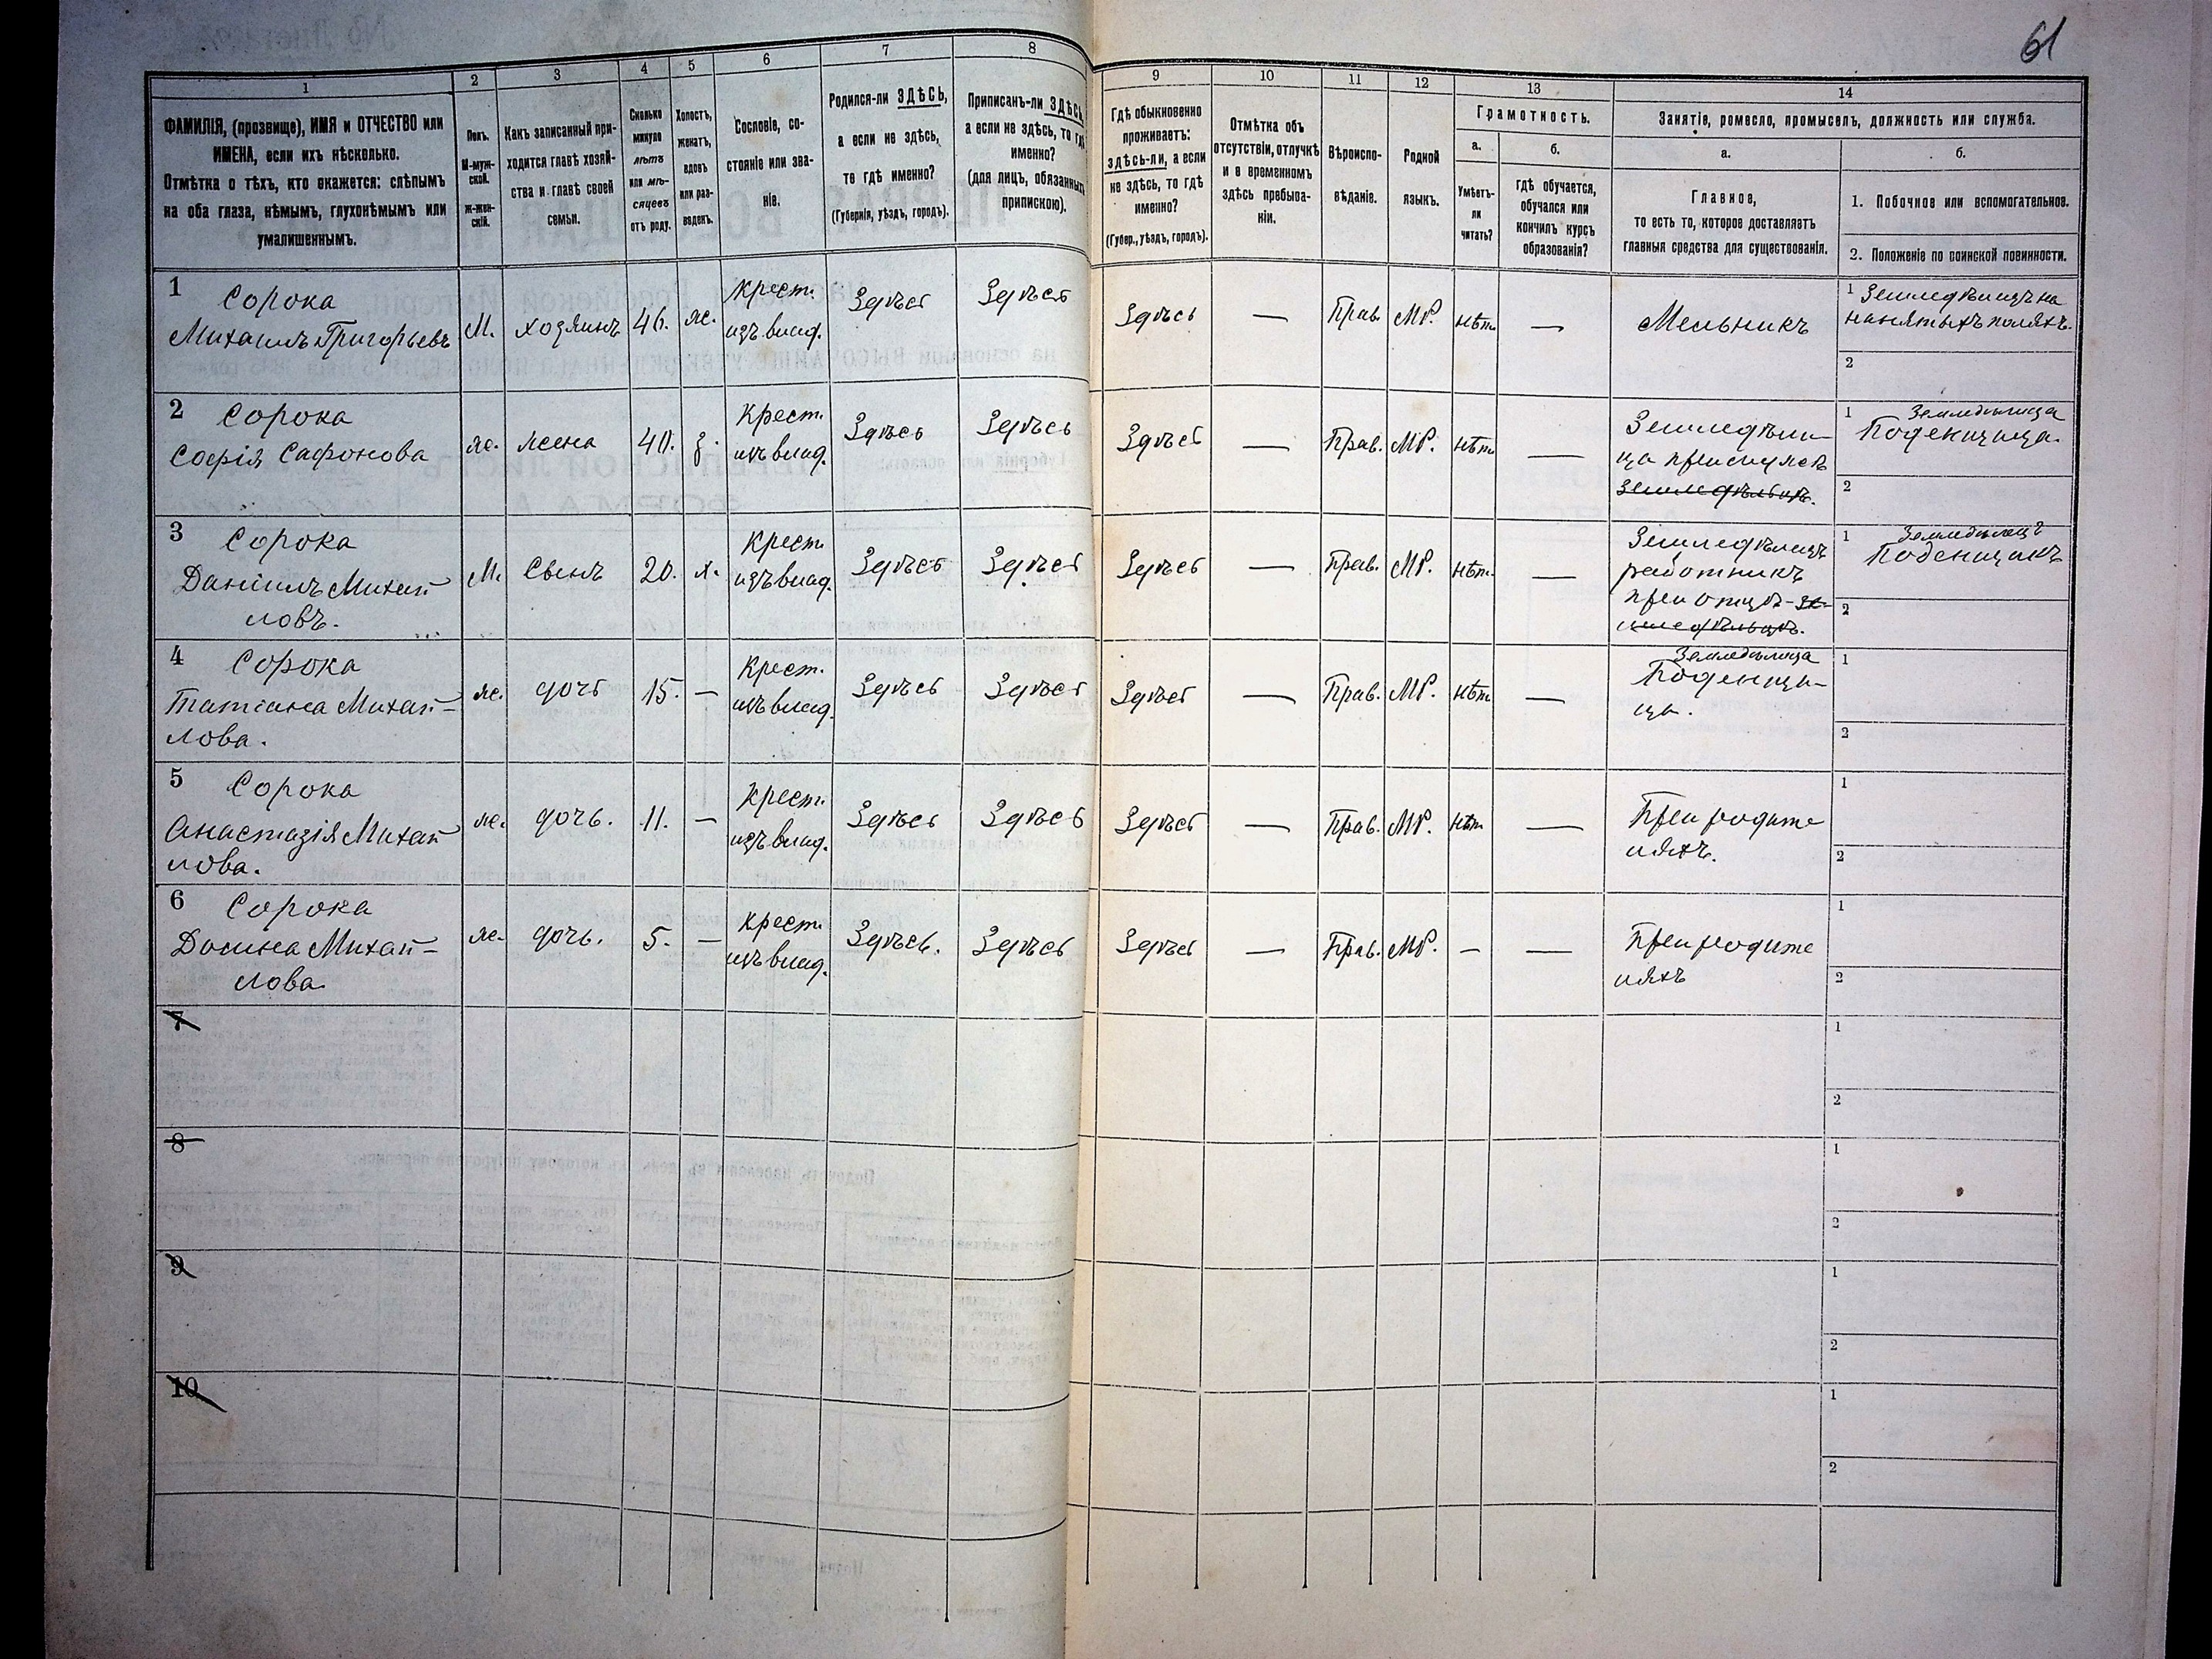 61
1
2
3
4
5
6
7
8
9
10
11
12
13
14
ФАМИЛІЯ, (прозвище), ИМЯ и ОТЧЕСТВО или
ИМЕНА, если ихъ нѣсколько.
Отмѣтка о тѣхъ, кто окажется: слѣпымъ
на оба глаза, нѣмымъ, глухонѣмымъ или
умалишеннымъ.
Полъ.
М-муж-
ской.
ж-жен-
скій.
Какъ записанный при-
ходится главѣ хозяй-
ства и главѣ своей
семьи.
Сколько
минуло
лѣтъ
или мѣ-
сяцевъ
отъ роду.
Холостъ,
женатъ,
вдовъ
или раз-
веденъ.
Сословіе, со-
стояніе или зва-
ніе.
Родился-ли ЗДѢСЬ,
а если не здѣсь,
то гдѣ именно?
(Губернія, уѣздъ, городъ).
Приписанъ-ли ЗДѢСЬ,
а если не здѣсь, то гдѣ
именно?
(для лицъ, обязанныхъ
припискою).
Гдѣ обыкновенно
проживаетъ:
здѣсь-ли, а если
не здѣсь, то гдѣ
именно?
(Губер., уѣздъ, городъ).
Отмѣтка объ
отсутствіи, отлучкѣ
и о временномъ
здѣсь пребыва-
ніи.
Вѣроиспо-
вѣданіе.
Родной
языкъ.
Грамотность.
а.
Умѣетъ-
ли
читать?
б.
гдѣ обучается,
обучался или
кончилъ курсъ
образованія?
Занятіе, ремесло, промыселъ, должность или служба.
а.
Главное,
то есть то, которое доставляетъ
главныя средства для существованія.
б.
1. Побочное или вспомогательное.
2. Положеніе по воинской повинности.
1 Сорока
Михаилъ Григорьевъ
М.
хозяинъ
46.
ж.
Крест.
изъ влад.
Здѣсь
Здѣсь
Здѣсь
—
Прав.
МР.
нѣт
—
Мельникъ
1 Земледѣлецъ на
нанятыхъ поляхъ.
2
2 Сорока
Софія Сафонова
ж.
жена
40.
з.
Крест.
изъ влад.
Здѣсь
Здѣсь
Здѣсь
—
Прав.
МР.
нѣт
—
Земледѣли-
ца при мужѣ
земледѣльцѣ.
1 Земледѣлица
Поденщица.
2
3 Сорока
Даніилъ Михай-
ловъ.
М.
Сынъ
20.
х.
Крест.
изъ влад.
Здѣсь
Здѣсь
Здѣсь
—
Прав.
МР.
нѣт.
—
Земледѣлецъ
работникъ
при отцѣ зе-
мледѣльцѣ.
1 Земледѣлецъ
Поденщикъ
2
4 Сорока
Татіана Михай-
лова.
ж.
дочь
15.
—
Крест.
изъ влад.
Здѣсь
Здѣсь
Здѣсь
—
Прав.
МР.
нѣт
—
Земледѣлица
Поденщи-
ца.
1
2
5 Сорока
Анастазія Михай
лова.
ж.
дочь.
11.
—
Крест.
изъ влад.
Здѣсь
Здѣсь
Здѣсь
—
Прав.
МР.
нѣт
—
При родите
ляхъ.
1
2
6 Сорока
Домна Михай-
лова
ж.
дочь.
5.
—
Крест.
изъ влад.
Здѣсь.
Здѣсь
Здѣсь
—
Прав.
МР.
—
—
При родите
ляхъ
1
2
7
1
2
8
1
2
9
1
2
10
1
2